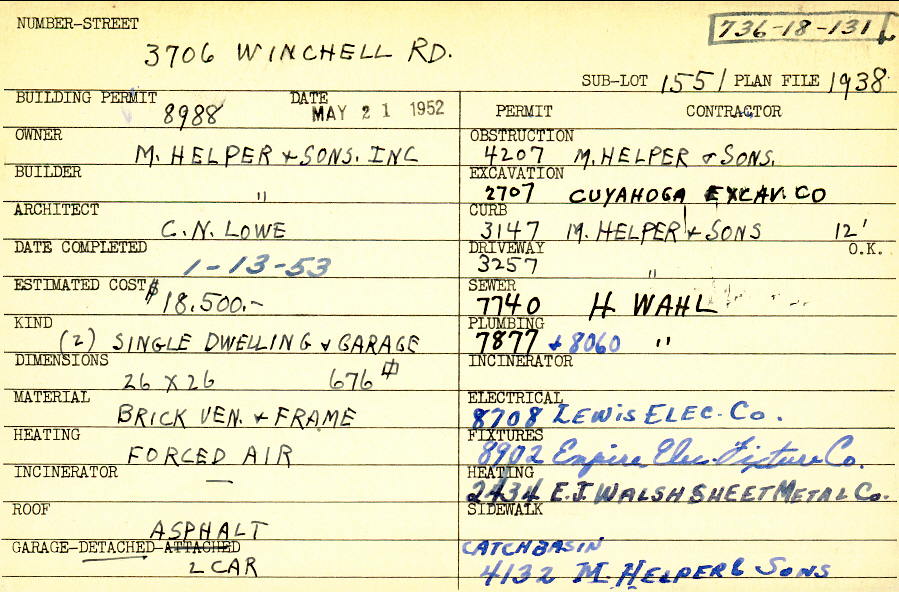 NUMBER-STREET
736-18-131
3706 WINCHELL RD.
SUB-LOT 155 / PLAN FILE 1938
BUILDING PERMIT 8988 DATE MAY 21 1952
OWNER M. HELPER & SONS. INC
BUILDER "
ARCHITECT C.N. LOWE
DATE COMPLETED 1-13-53
ESTIMATED COST $ 18.500.-
KIND (2) SINGLE DWELLING & GARAGE
DIMENSIONS 26 X 26 676
MATERIAL BRICK VEN. & FRAME
HEATING FORCED AIR
INCINERATOR —
ROOF ASPHALT
GARAGE-DETACHED-ATTACHED
2 CAR
PERMIT CONTRACTOR
OBSTRUCTION
4207 M. HELPER & SONS.
EXCAVATION
2707 CUYAHOGA EXCAV. CO
CURB
3147 M. HELPER & SONS 12'
DRIVEWAY O.K.
3257 "
SEWER
7740 H WAHL
PLUMBING
7877 + 8060 "
INCINERATOR
ELECTRICAL
8708 LEWIS ELEC. CO.
FIXTURES
8902 Empire Elec. Fixture Co.
HEATING
2434 E.J. WALSH SHEET METAL CO.
SIDEWALK
CATCHBASIN
4132 M. HELPER & SONS